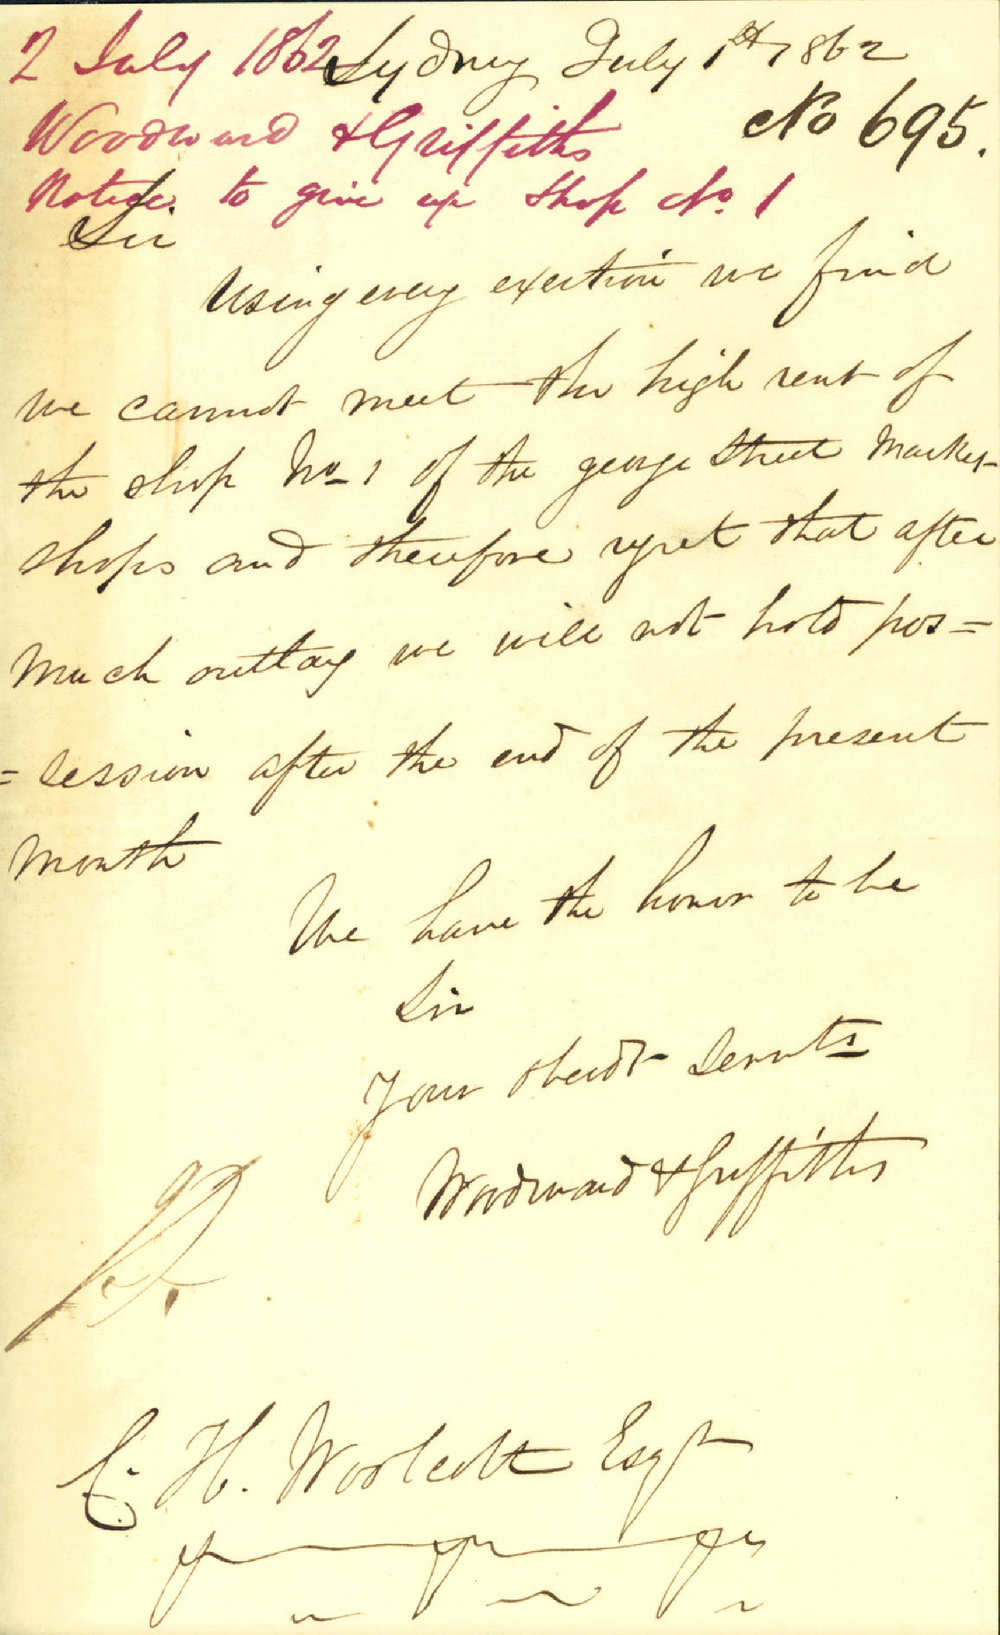 2 July 1862
Sydney July 1st 1862
Woodward & Griffiths
No 695.
Notice to give up Shop No. 1
Sir
Using every exertion we find
we cannot meet the high rent of
the shop No 1 of the george Street Market
shops and therefore regret that after
Much outlay we will not hold pos=
=session after the end of the present
Month
We have the honor to be
Sir
Your obedt Servnts
Woodward & Griffiths
C. H. Woolcott Esqr